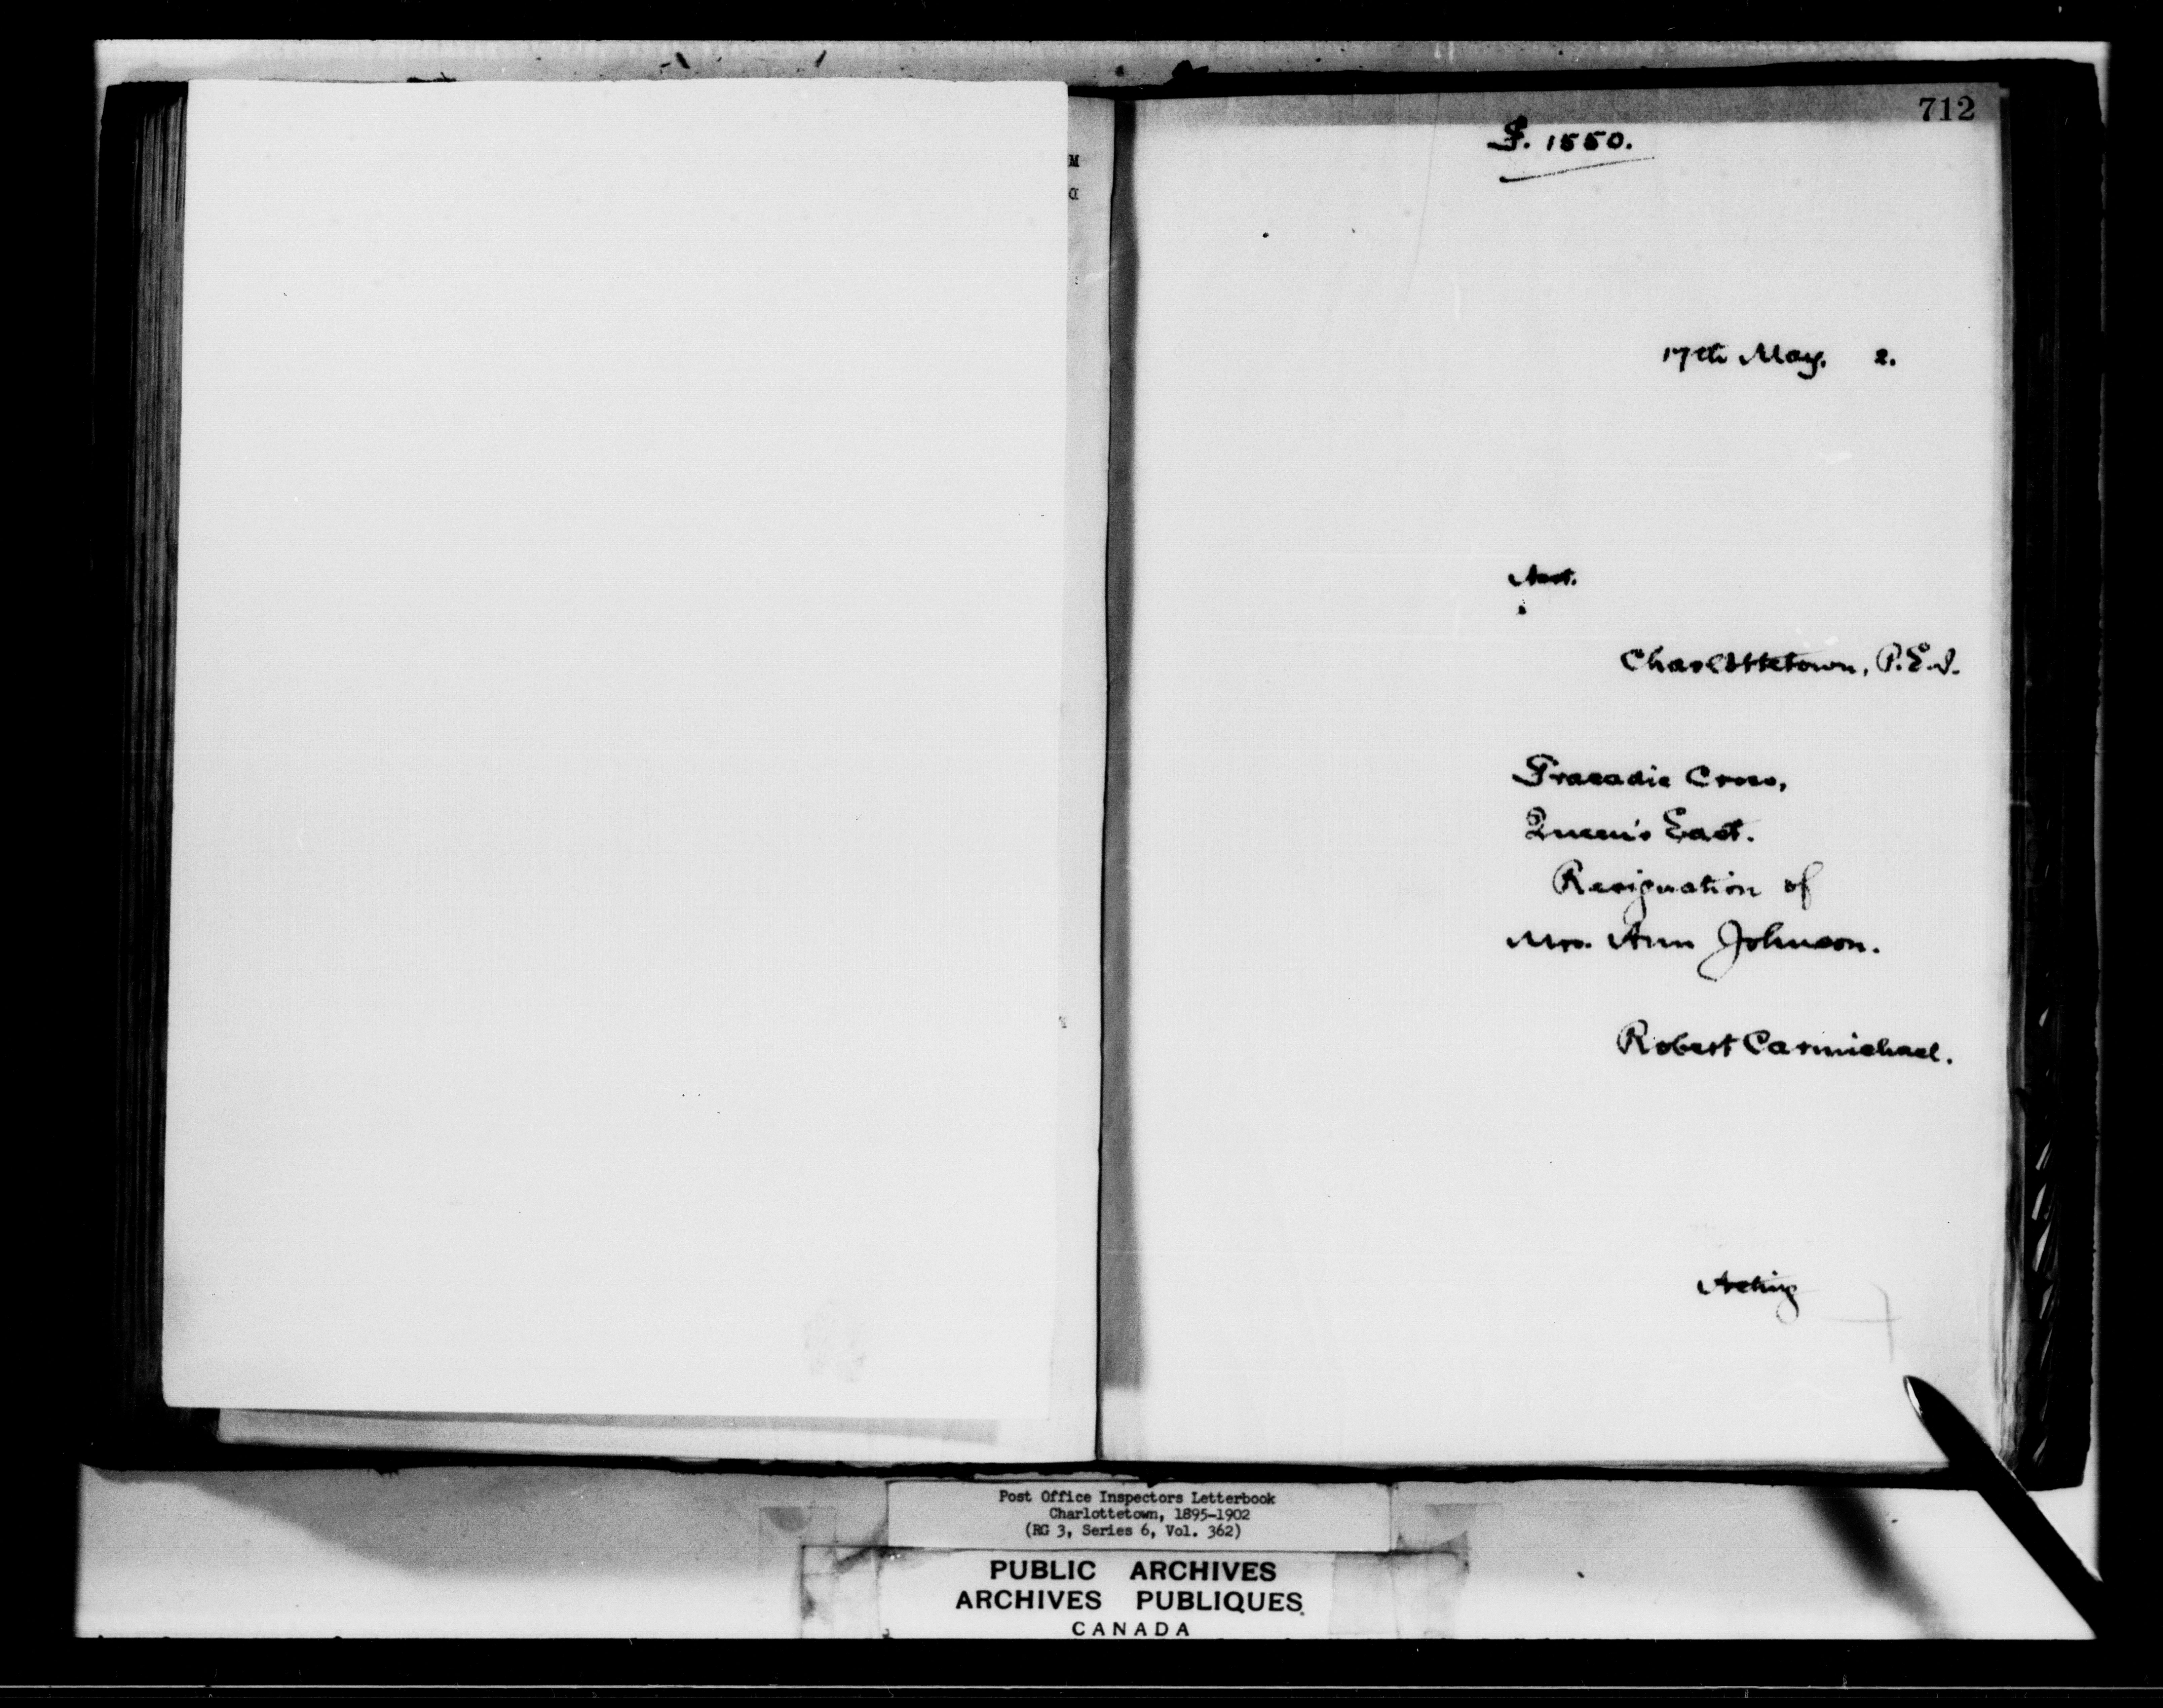 712
F. 1550.
17th May, 2.
Charlottetown, P.E.I.
Tracadie Cross,
Queen's East.
Resignation of
Mrs. Ann Johnson.
Robert Carmichael.
Acting
Post Office Inspectors Letterbook
Charlottetown, 1895-1902
(RG 3, Series 6, Vol. 362)
PUBLIC ARCHIVES
ARCHIVES PUBLIQUES
CANADA